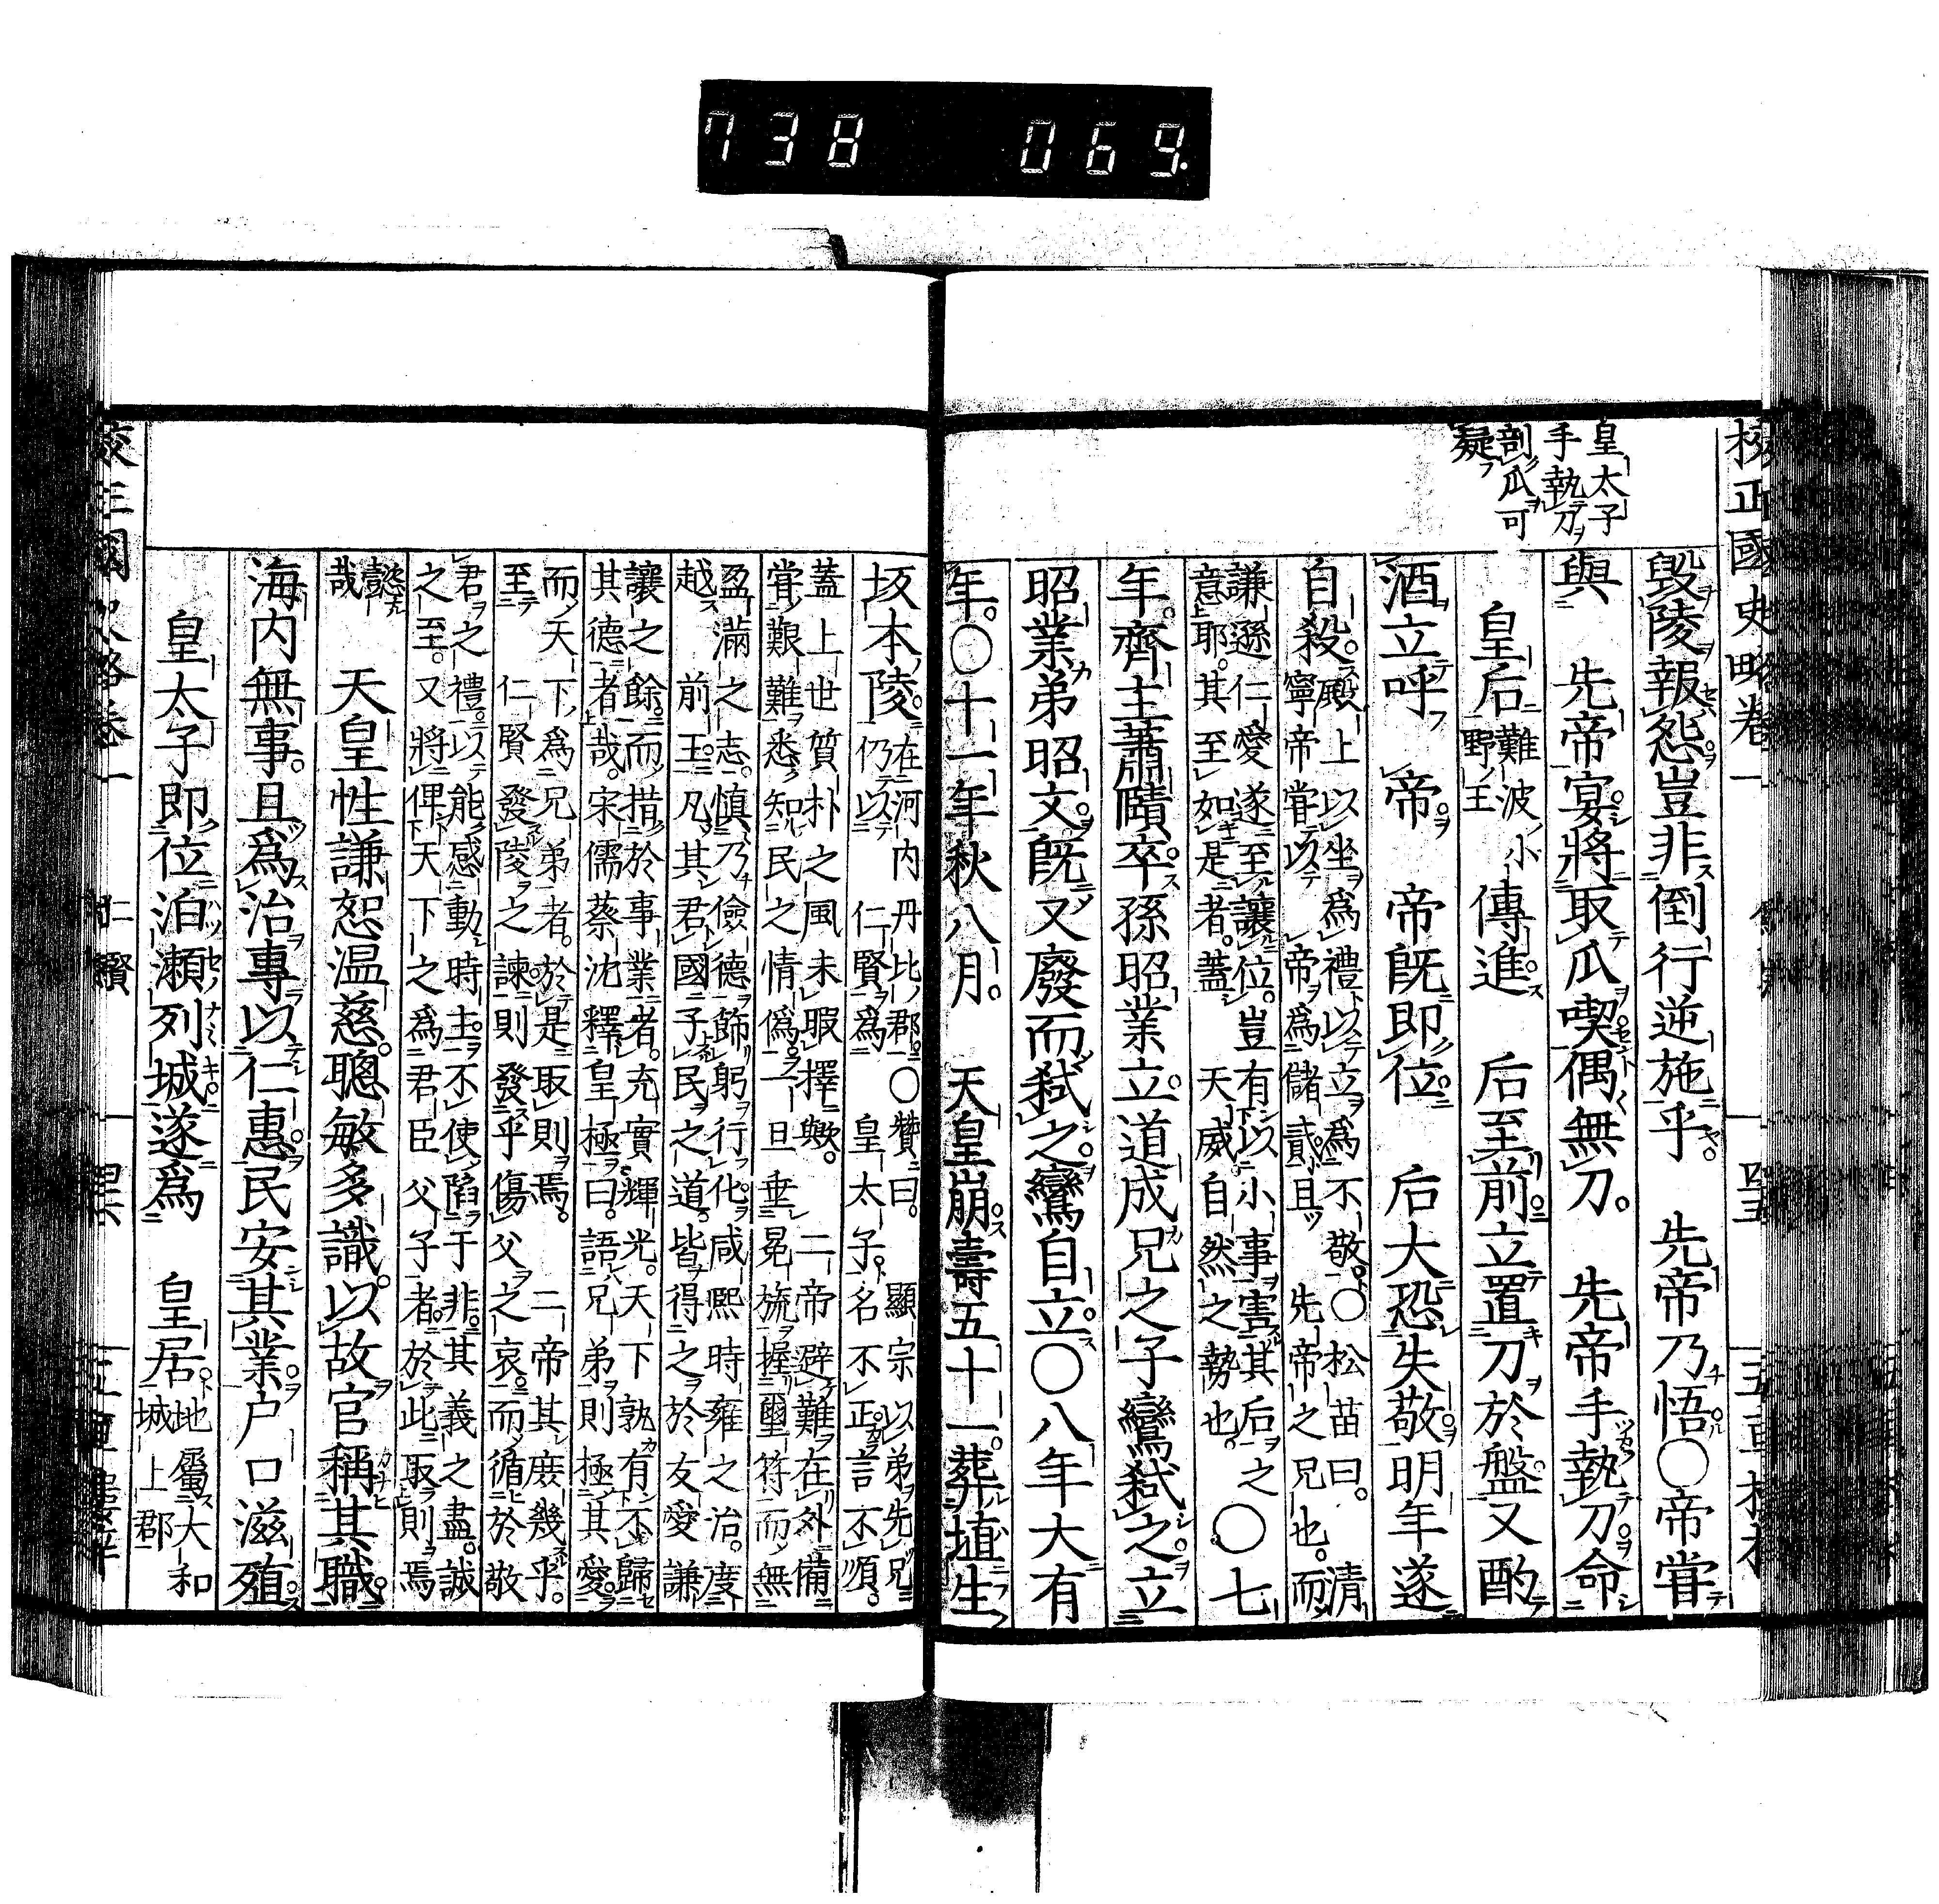 738 069
校正國史略卷一
皇太子
手執刀
剖瓜可
疑
毀陵報怨豈非倒行逆施乎。　先帝乃悟〇帝嘗
與　先帝宴將取瓜喫偶無刀。　先帝手執刀命
皇后難波小野王傳進　后至前立置刀於盤又酌
酒立呼　帝　帝既即位　后大恐失敬明年遂
自殺。殿上以坐爲禮以立爲不敬〇松苗曰。清
寧帝嘗以　帝爲儲貳且　先帝之兄也。而
謙遜仁愛遂至讓位。豈有以小事害其后之
意耶。其至如是者。蓋　天威自然之勢也。〇七
年。齊主蕭賾卒孫昭業立道成兄之子鸞弑之立
昭業弟昭文既又廢而弑之鸞自立〇八年大有
年。〇十一年秋八月。　天皇崩壽五十一。葬埴生
坂本陵在河内丹比郡〇贊曰。顯宗以弟先兄
仍以　仁賢爲　皇太子。名不正言不順。
蓋上世質朴之風未暇擇歟。　二帝避難在外備
嘗艱難悉知民之情僞。一旦垂冕旒握璽符而無
盈滿之志。慎乃儉德飾躬行化咸熙時雍之治。度
越　前王。凡其君國子民之道。皆得之於友愛謙
讓之餘而措於事業者。充實輝光。天下孰有不歸
其德者哉。宋儒蔡沈釋皇極曰。語兄弟則極其愛。
而天下爲兄弟者。於是取則焉。　二帝其庶幾乎。
至　仁賢發陵之諫則　發乎傷父之哀而循於敬
君之禮以能感動時主不使陷于非其義之盡。誠
之至。又將俾天下之爲君臣父子者。於此取則焉
懿哉　天皇性謙恕温慈。聰敏多識。以故官稱其職。
海内無事。且爲治專以仁惠民安其業户口滋殖。
皇太子即位泊瀬列城遂爲　皇居。地屬大和城上郡
仁賢